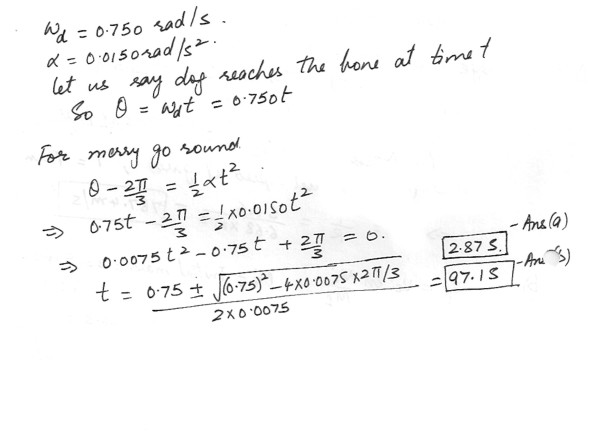 ωd = 0.750 rad/s.
α = 0.0150 rad/s².
let us say dog reaches the bone at time t
So θ = ωdt = 0.750t
For merry go round
θ - 2π/3 = 1/2 αt²
⇒ 0.75t - 2π/3 = 1/2 x 0.0150t²
⇒ 0.0075t² - 0.75t + 2π/3 = 0.
t = 0.75 ± √(0.75)² - 4x0.0075x2π/3 / 2x0.0075 = 2.87 S. - Ans(a)
97.1S - Ans